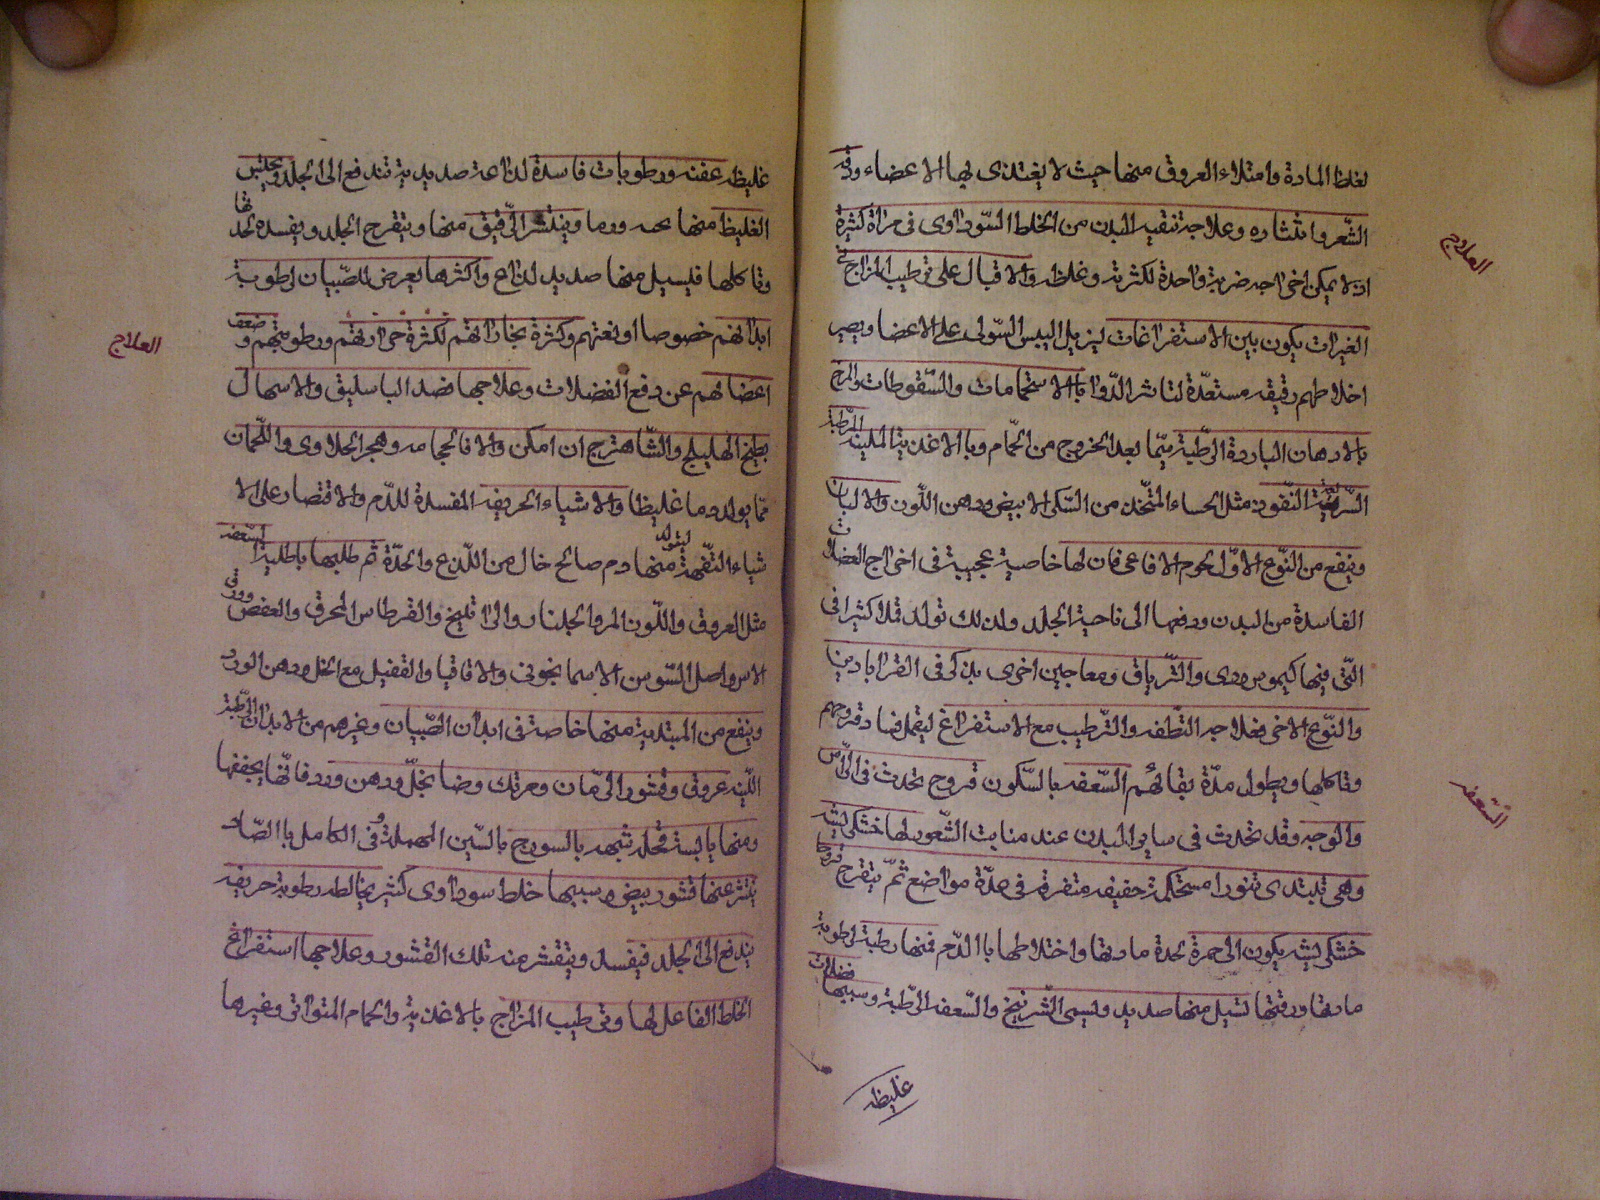 لغلظ المادة وامتلاء العروق منها حيث لا يغتذى بها الاعضاء ورقة
الشعر وانتثاره وعلاجه تنقية البدن من الخلط السوداوى فى مراة كثيرة
اذ لا يمكن اخراجه ضربة واحدة لكثرته وغلظه والاقبال على ترطيب المزاج فى
العلاج
الغيرات يكون بين الاستفراغات ليزيل اليبس المستولى على الاعضا ويصير
اخلاطهم رقيقة مستعدة لتاثير الدوا بالاستحمامات والسقوطات والمرخ
بالادهان الباردة الرطبة سيما بعد الخروج من الحمام وبالاغذية المليئة المرطبة
السريعة النفوذ مثل الحساء المتخذ من السكر الابيض ودهن اللوز والالبان
وينفع من النوع الاول لحوم الافاعى فان لها خاصية عجيبة فى اخراج الفضلات
الفاسدة من البدن ودفعها الى ناحية الجلد ولذلك تولد قملا كثيرا فى
التى فيها كيموس ردى والترياق ومعاجين اخرى يذكر فى القراباذينا
والنوع الاخر فعلاجه التطفيه والترطيب مع الاستفراغ ليقل فساد قروحهم
وتاكلها ويطول مدة بقائهم السعفه بالسكون قروح تحدث فى الراس
السعفه
والوجه وقد تحدث فى ساير البدن عند منابت الشعور لها خشكريشه
وهى تبتدى بثورا مستحكمة خفيفه متفرقة فى عدة مواضع ثم يتقرح قروحا
خشكريشيه يكون الى حمرة لحدة مادتها واختلاطها باالدم فمنها رطبة لرطوبة
مادتها ورقتها تسيل منها صديد وتسمى الشيرينج والسعفه الرطبة وسببها فضلات
غليظه
غليظه عفنه ورطوبات فاسدة لذاعة صديدية تندفع الى الجلد ويحتبس
الغليظ منها تحته ورما وينتشر الرقيق منها ويتقرح الجلد ويفسده لحدتها
وتاكلها فيسيل منها صديد لذاع واكثرها يعرض للصبيان لرطوبة
ابدانهم خصوصا ادمغتهم وكثرة بخاراتهم لكثرة حرارتهم ورطوبتهم وضعف
العلاج
اعضائهم عن دفع الفضلات وعلاجها فصد الباسليق والاسهال
بطبخ الهليلج والشاهترج ان امكن والا فالحجامه وهجر الحلاوى واللحمان
مما يولد دما غليظا والاشياء الحريفه المفسدة للدم والاقتصار على الا
شياء التفهة ليتولد منها دم صالح خال من اللذع والحدة ثم طليها باطلية السعفه
مثل العروق واللوز المر والجلنار والراتينج والقرطاس المحرق والعفص وورق
الاس واصل السوسن الاسمانجونى والاقاقيا والقفيل مع الخل ودهن الورد
وينفع من المبتدية منها خاصة فى ابدان الصبيان وغيرهم من الابدان الرطبة
اللينه عروق وقشور الرمان ومرتك وحنا بخل ودهن ورد فانها يجففها
ومنها يابسة قحله شبهه بالسورج بالسين المهملة وفى الكامل باالصاد
ينتثر عنها قشور بيض وسببها خلط سوداوى كثير يخالطه رطوبة حريفه
يندفع الى الجلد فيفسد ويتقشر منه تلك القشور وعلاجها استفراغ
الخلط الفاعل لها وترطيب المزاج بالاغذية والحمام المتواتر وغيرها